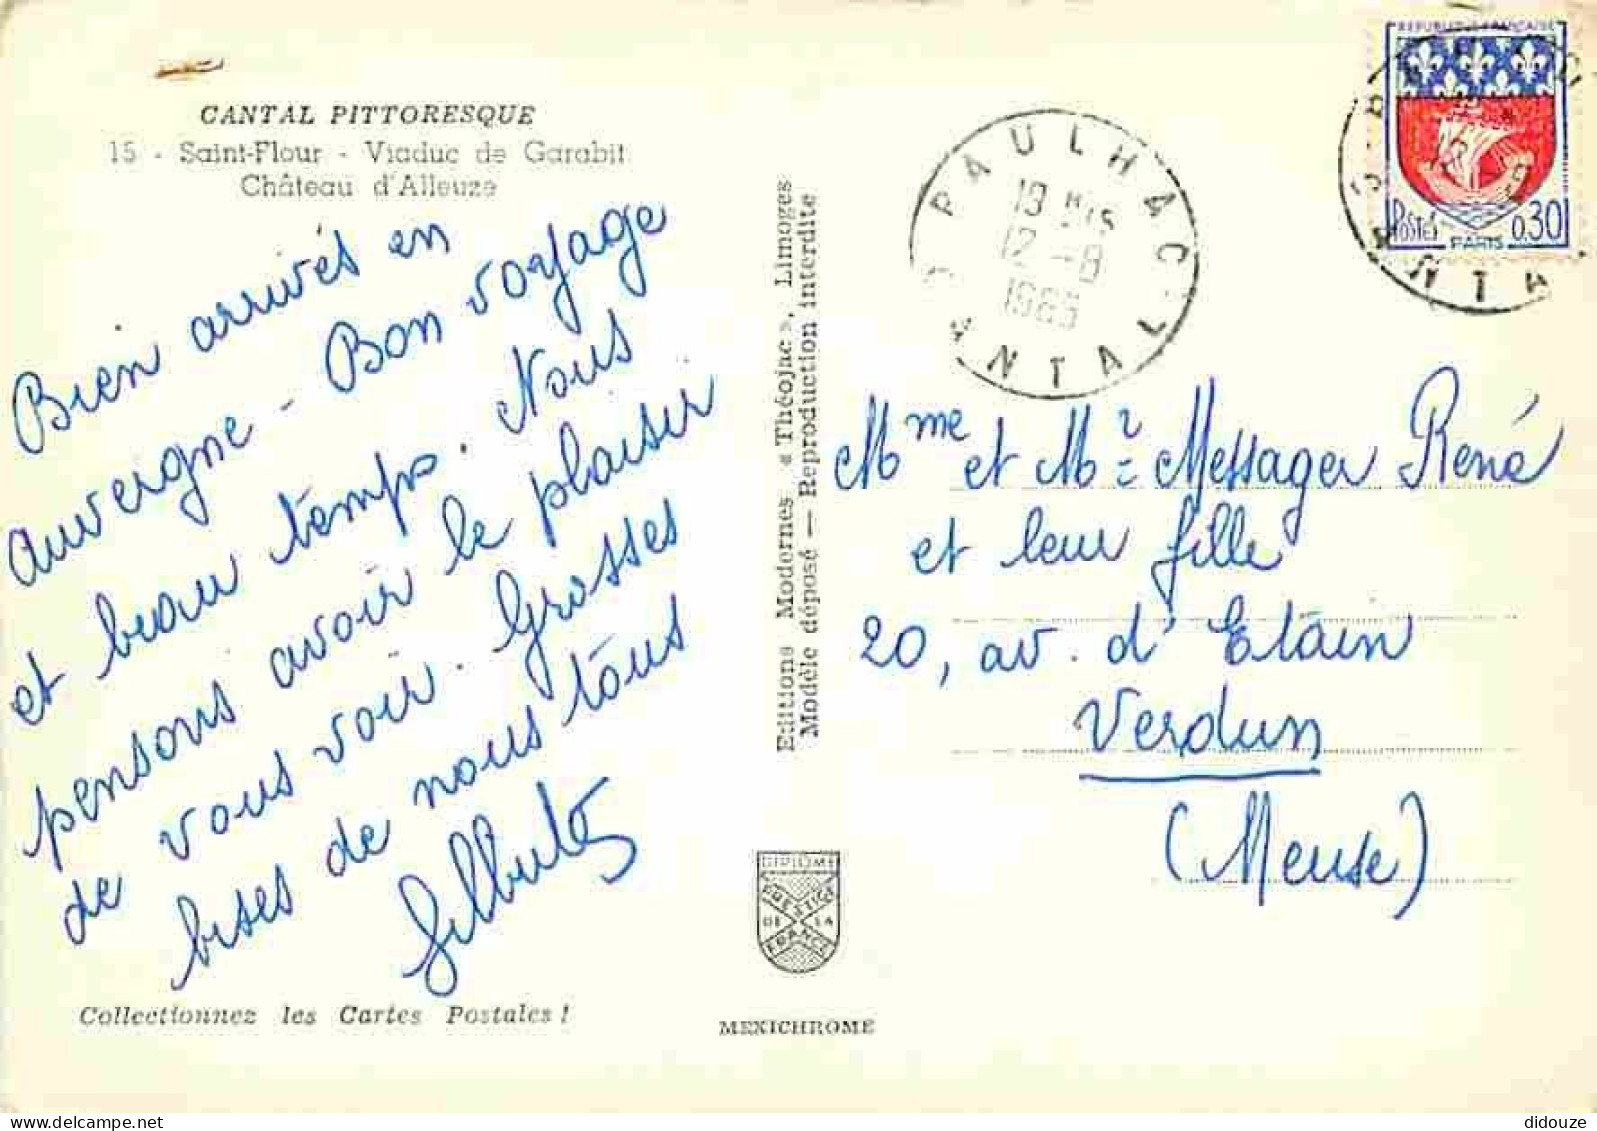 CANTAL PITTORESQUE
15 - Saint-Flour - Viaduc de Garabit
Château d'Alleuze
Bien arrivés en
auvergne - Bon voyage
et beau temps. Nous
pensons avoir le plaisir
de vous voir. Grosses
bises de nous tous
Collectionnez les Cartes Postales !
Editions Modernes « Théojac », Limoges
Modèle déposé — Reproduction interdite
DIPLOME
PRESTIGE
DE LA
FRANCE
MEXICHROME
PAULHAC
19 HIS
12 -8
CANTAL
REPUBLIQUE FRANÇAISE
POSTES
PARIS
0,30
Mme et Mr Messager René
et leur fille
20, av. d'Etain
Verdun
(Meuse)
didouze